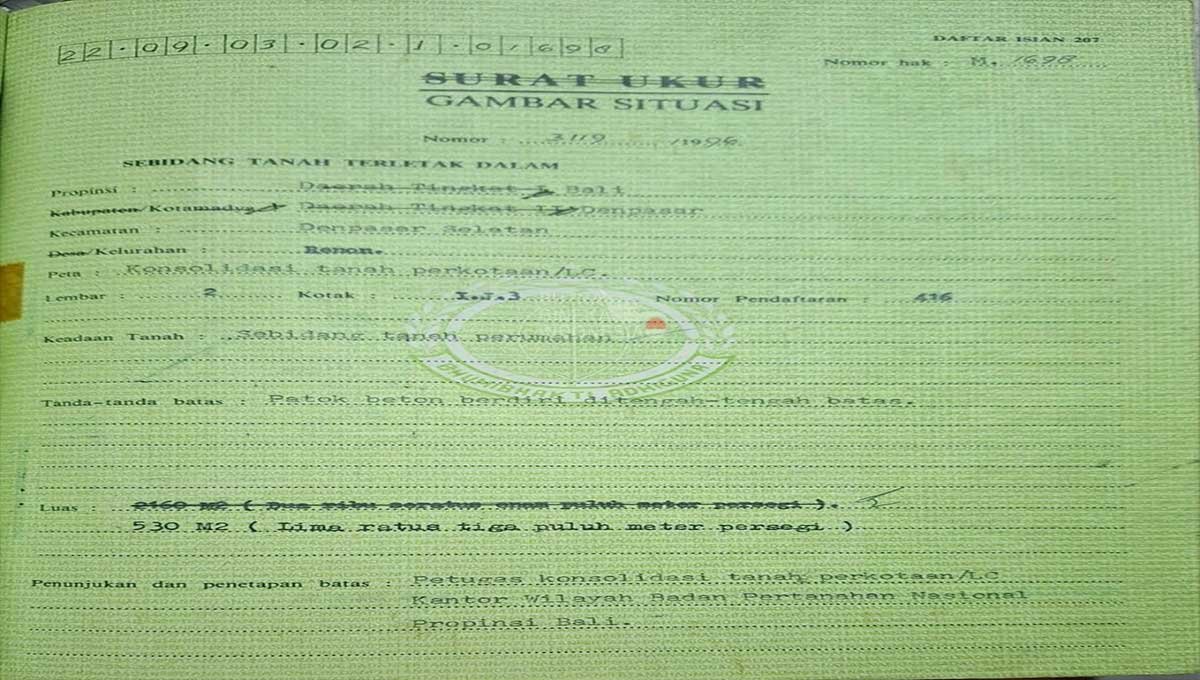 22.09.03.02.1.01698
DAFTAR ISIAN 207
Nomor hak : M. 1698
SURAT UKUR
GAMBAR SITUASI
Nomor : 3119 /1996
SEBIDANG TANAH TERLETAK DALAM
Propinsi : Daerah Tingkat I Bali
Kabupaten/Kotamadya Daerah Tingkat II Denpasar
Kecamatan : Denpasar Selatan
Desa/Kelurahan : Renon.
Peta : Konsolidasi tanah perkotaan/LC.
Lembar : 2 Kotak : I.J.3 Nomor Pendaftaran : 416
Keadaan Tanah : Sebidang tanah perumahan
Tanda-tanda batas : Patok beton berdiri ditengah-tengah batas.
Luas : 2160 M2 ( Dua ribu seratus enam puluh meter persegi ).
530 M2 ( Lima ratus tiga puluh meter persegi )
Penunjukan dan penetapan batas : Petugas konsolidasi tanah perkotaan/LC
Kantor Wilayah Badan Pertanahan Nasional
Propinsi Bali.